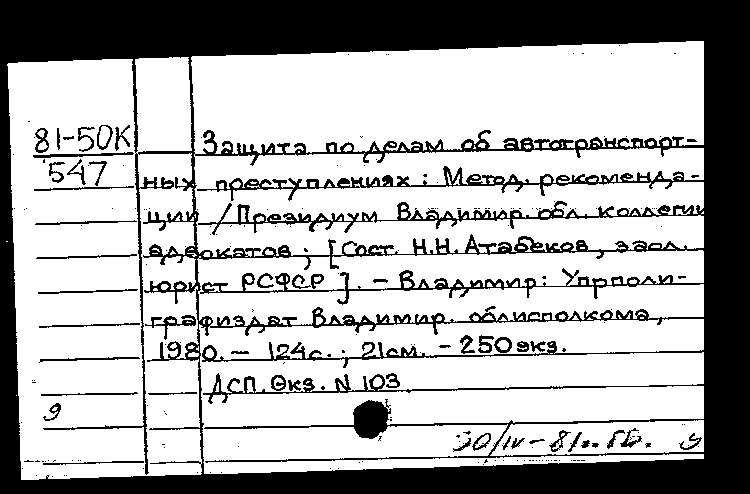 81-50К
547
Защита по делам об автотранспорт-
ных преступлениях : Метод. рекоменда-
ции / Президиум Владимир. обл. коллегии
адвокатов ; [Сост. Н.Н. Атабеков, засл.
юрист РСФСР ]. – Владимир : Упрполи-
графиздат Владимир. облисполкома,
1980. – 124с. ; 21см. – 250 экз.
ДСП. Экз. N 103
9
30/IV – 81г. ГБ.